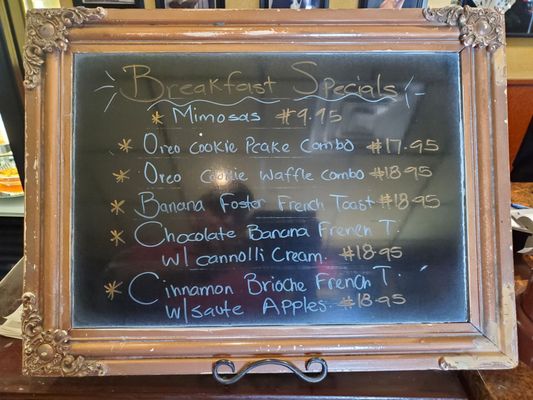 Breakfast Specials
* Mimosas #9.95
* Oreo Cookie Pcake Combo #17.95
* Oreo Cookie Waffle Combo #18.95
* Banana Foster French Toast #18.95
* Chocolate Banana French T.
w/ cannolli Cream. #18.95
* Cinnamon Brioche French T.
w/saute Apples #18.95